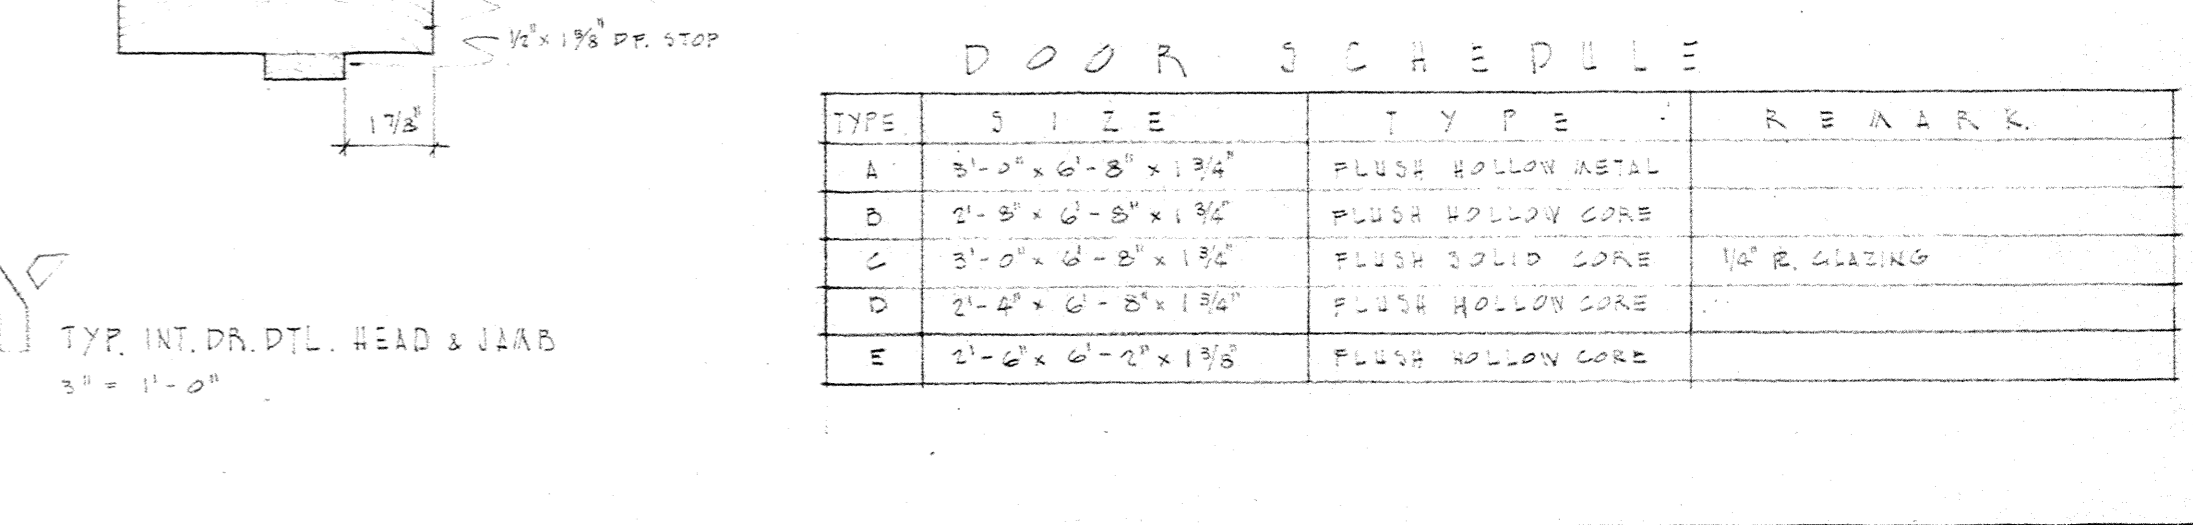 1/2" x 1 3/8" DF. STOP
1 7/8"
TYP. INT. DR. DTL. HEAD & JAMB
3" = 1'-0"
DOOR SCHEDULE
TYPE SIZE TYPE REMARK.
A 3'-0" x 6'-8" x 1 3/4" FLUSH HOLLOW METAL
B 2'-8" x 6'-8" x 1 3/4" FLUSH HOLLOW CORE
C 3'-0" x 6'-8" x 1 3/4" FLUSH SOLID CORE 1/4" GLAZING
D 2'-4" x 6'-8" x 1 3/4" FLUSH HOLLOW CORE
E 2'-6" x 6'-2" x 1 3/8" FLUSH HOLLOW CORE